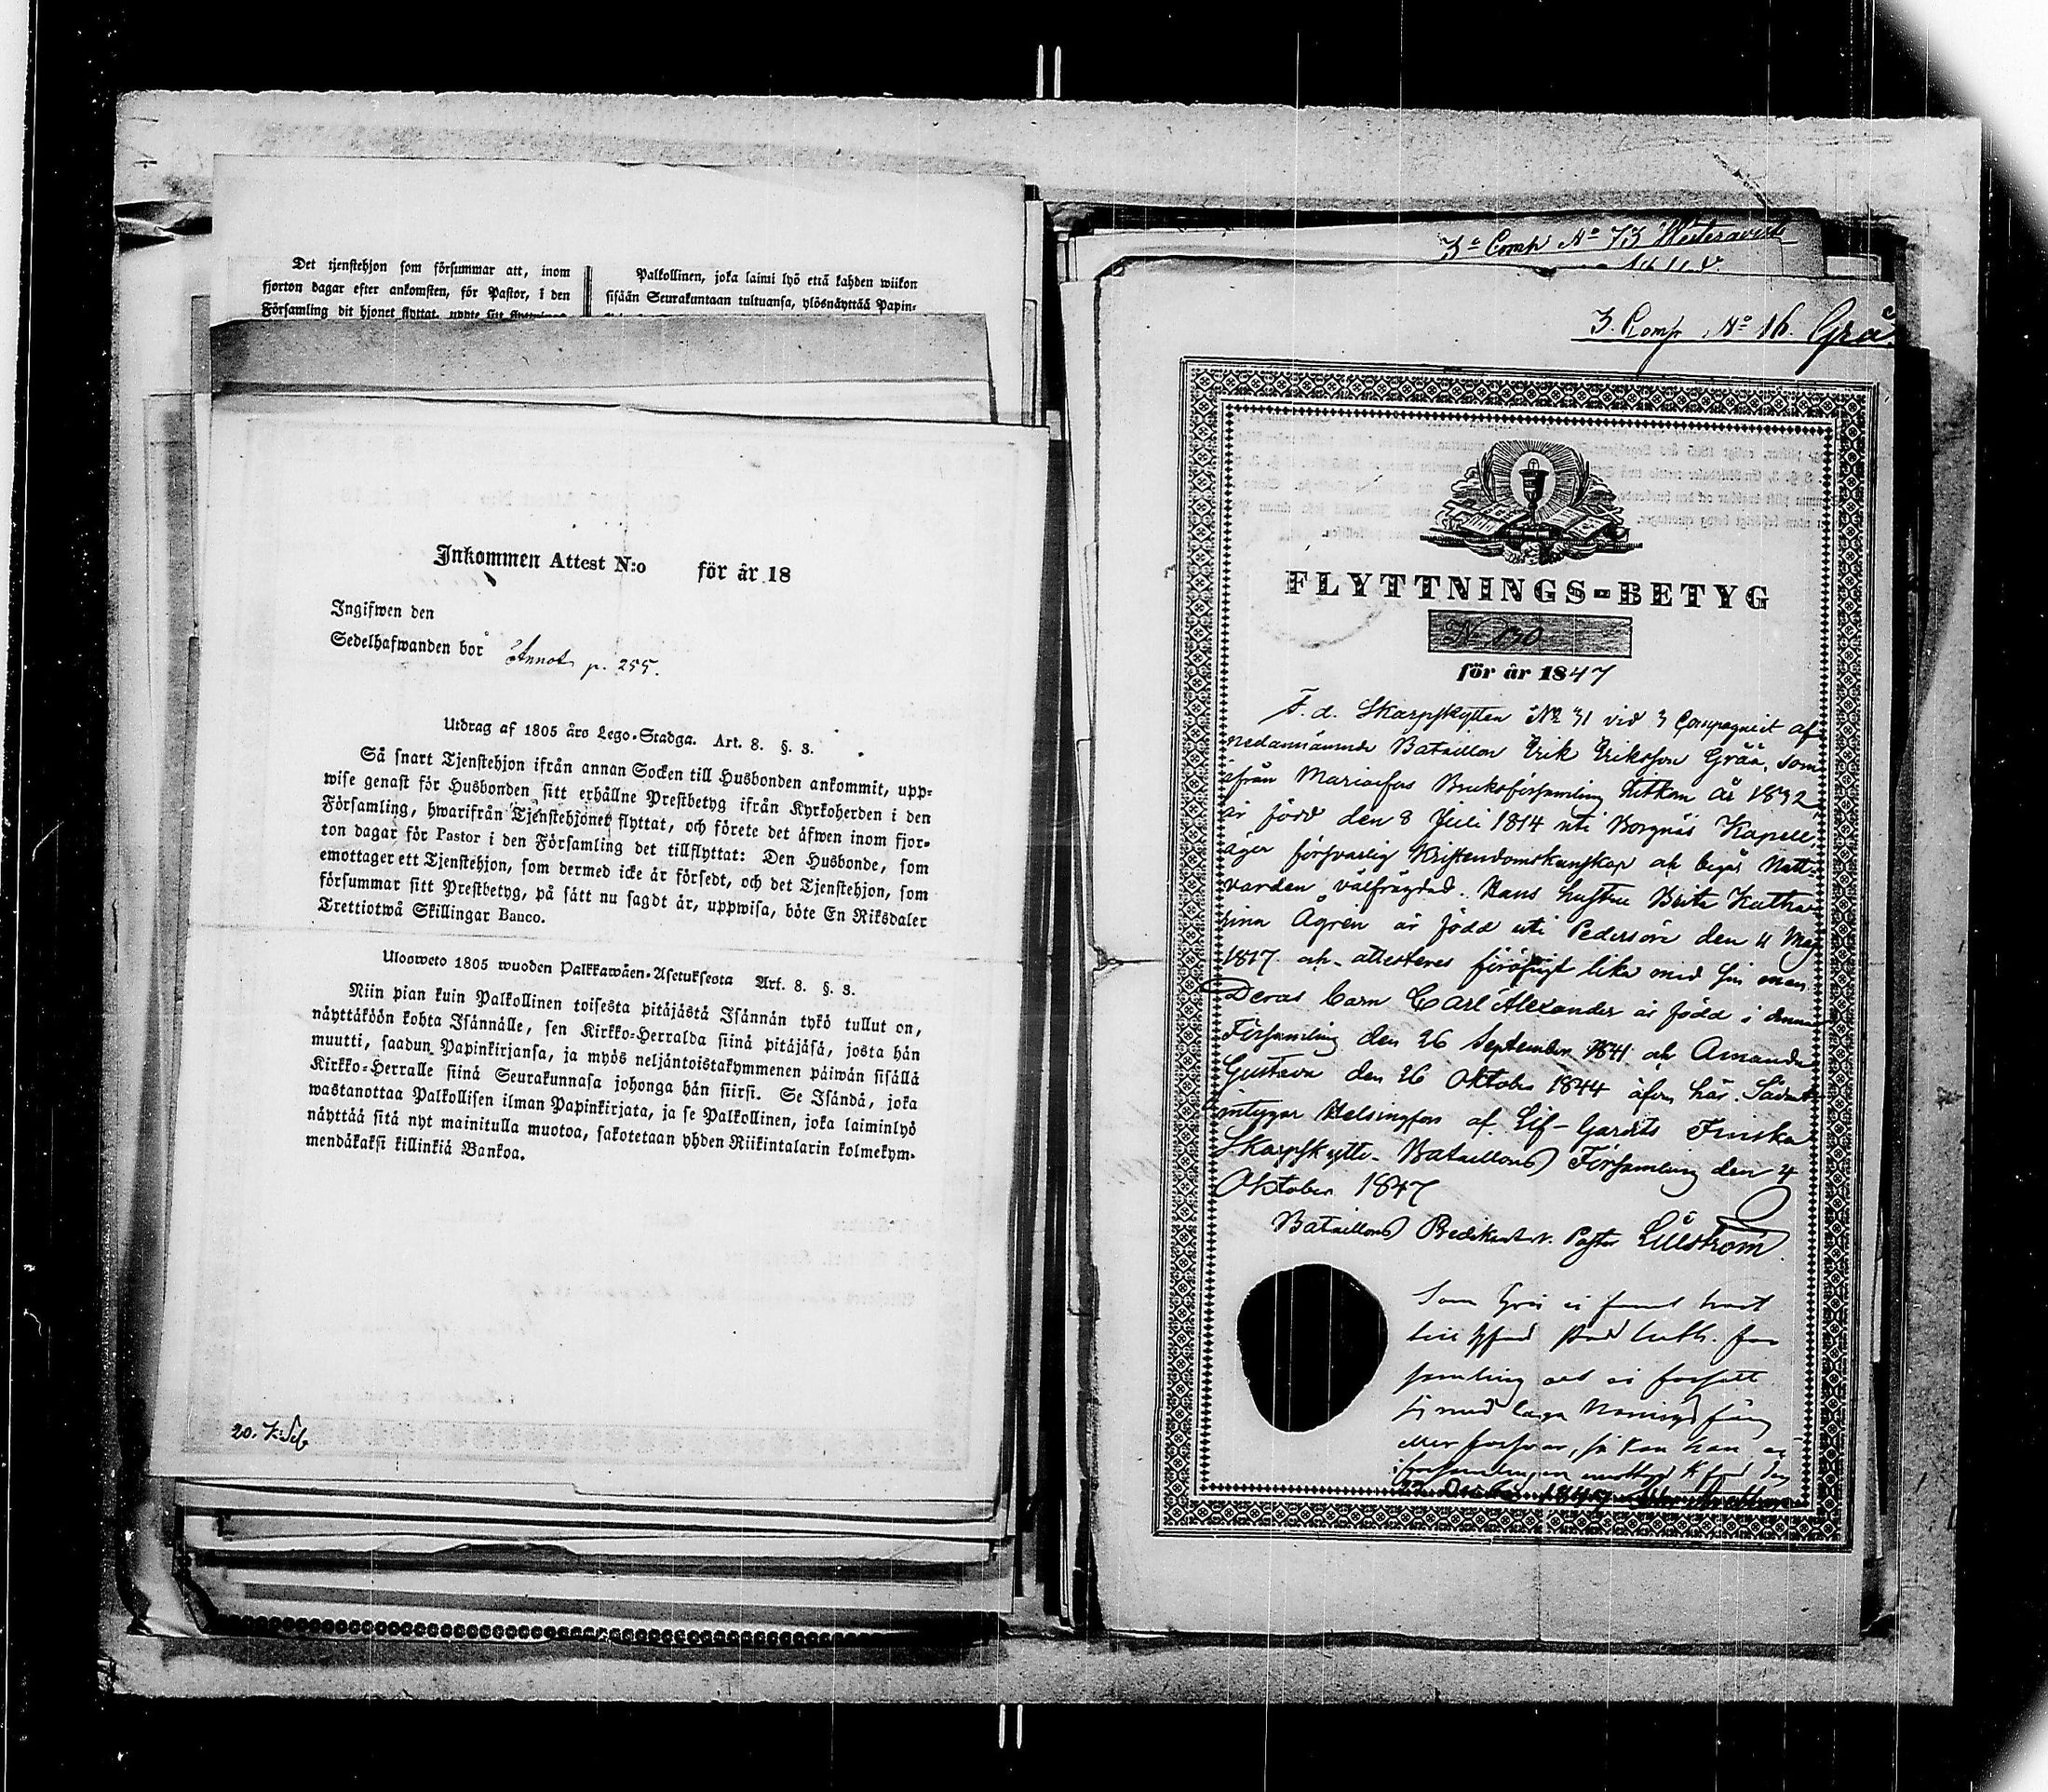 Det tjenstehjon som försummar att, inom
fjorton dagar efter ankomsten, för Pastor, i den
Församling dit hjonet flyttat, uppte sitt
Palkollinen, joka laimi lyö että kahden wiikon
sisään Seurakuntaan tultuansa, ylösnäyttää Papin-
Inkommen Attest N:o för år 18
Ingifwen den
Sedelhafwanden bor Annot. p. 255.
Utdrag af 1805 års Lego-Stadga. Art. 8. §. 3.
Så snart Tjenstehjon ifrån annan Socken till Husbonden ankommit, upp-
wise genast för Husbonden sitt erhållne Prestbetyg ifrån Kyrkoherden i den
Församling, hwarifrån Tjenstehjonet flyttat, och förete det äfwen inom fjor-
ton dagar för Pastor i den Församling det tillflyttat: Den Husbonde, som
emottager ett Tjenstehjon, som dermed icke är försedt, och det Tjenstehjon, som
försummar sitt Prestbetyg, på sätt nu sagdt är, uppwisa, böte En Riksdaler
Trettiotwå Skillingar Banco.
Ulosweto 1805 wuoden Palkkawäen-Asetuksesta Art. 8. §. 3.
Niin pian kuin Palkollinen toisesta pitäjästä Isännän tykö tullut on,
näyttäköön kohta Isännälle, sen Kirkko-Herralda siinä pitäjäsä, josta hän
muutti, saadun Papinkirjansa, ja myös neljäntoistakymmenen päiwän sisällä
Kirkko-Herralle siinä Seurakunnasa johonga hän siirsi. Se Isändä, joka
wastanottaa Palkollisen ilman Papinkirjata, ja se Palkollinen, joka laiminlyö
näyttää sitä nyt mainitulla muotoa, sakotetaan yhden Riikintalarin kolmekym-
mendäkaksi killinkiä Bankoa.
20.
3e Comp No 73
3. Comp. No 16. Grå
FLYTTNINGS-BETYG
No 130
för år 1847
F. d. Skarpskytten No 31 vid 3 Compagniet af
nedannämnde Bataillon Erik Eriksson Gråå, som
ifrån Mariæfors Bruksförsamling hitkom år 1832
är född den 8 Juli 1814 uti Borgnäs Kapell,
äger försvarlig Kristendomskunskap och begår Natt-
varden, välfrägdad. Hans hustru Brita Katha-
rina Ågren är född uti Pedersöre den 11 Maj
1817 och attesteras föröfrigt lika med sin man.
Deras barn Carl Alexander är född i denna
Församling den 26 September 1841 och Amanda
Gustava den 26 Oktober 1844 äfven här. Sådant
intygar Helsingfors af Lif-Gardets Finska
Skarpskytte-Bataillons Församling den 4
Oktober 1847
Bataillons Predikant v. Pastor Lilström
Som Grå ej
luth. för
samling och ej försett
sig med laga
eller försvar, så kan han ej